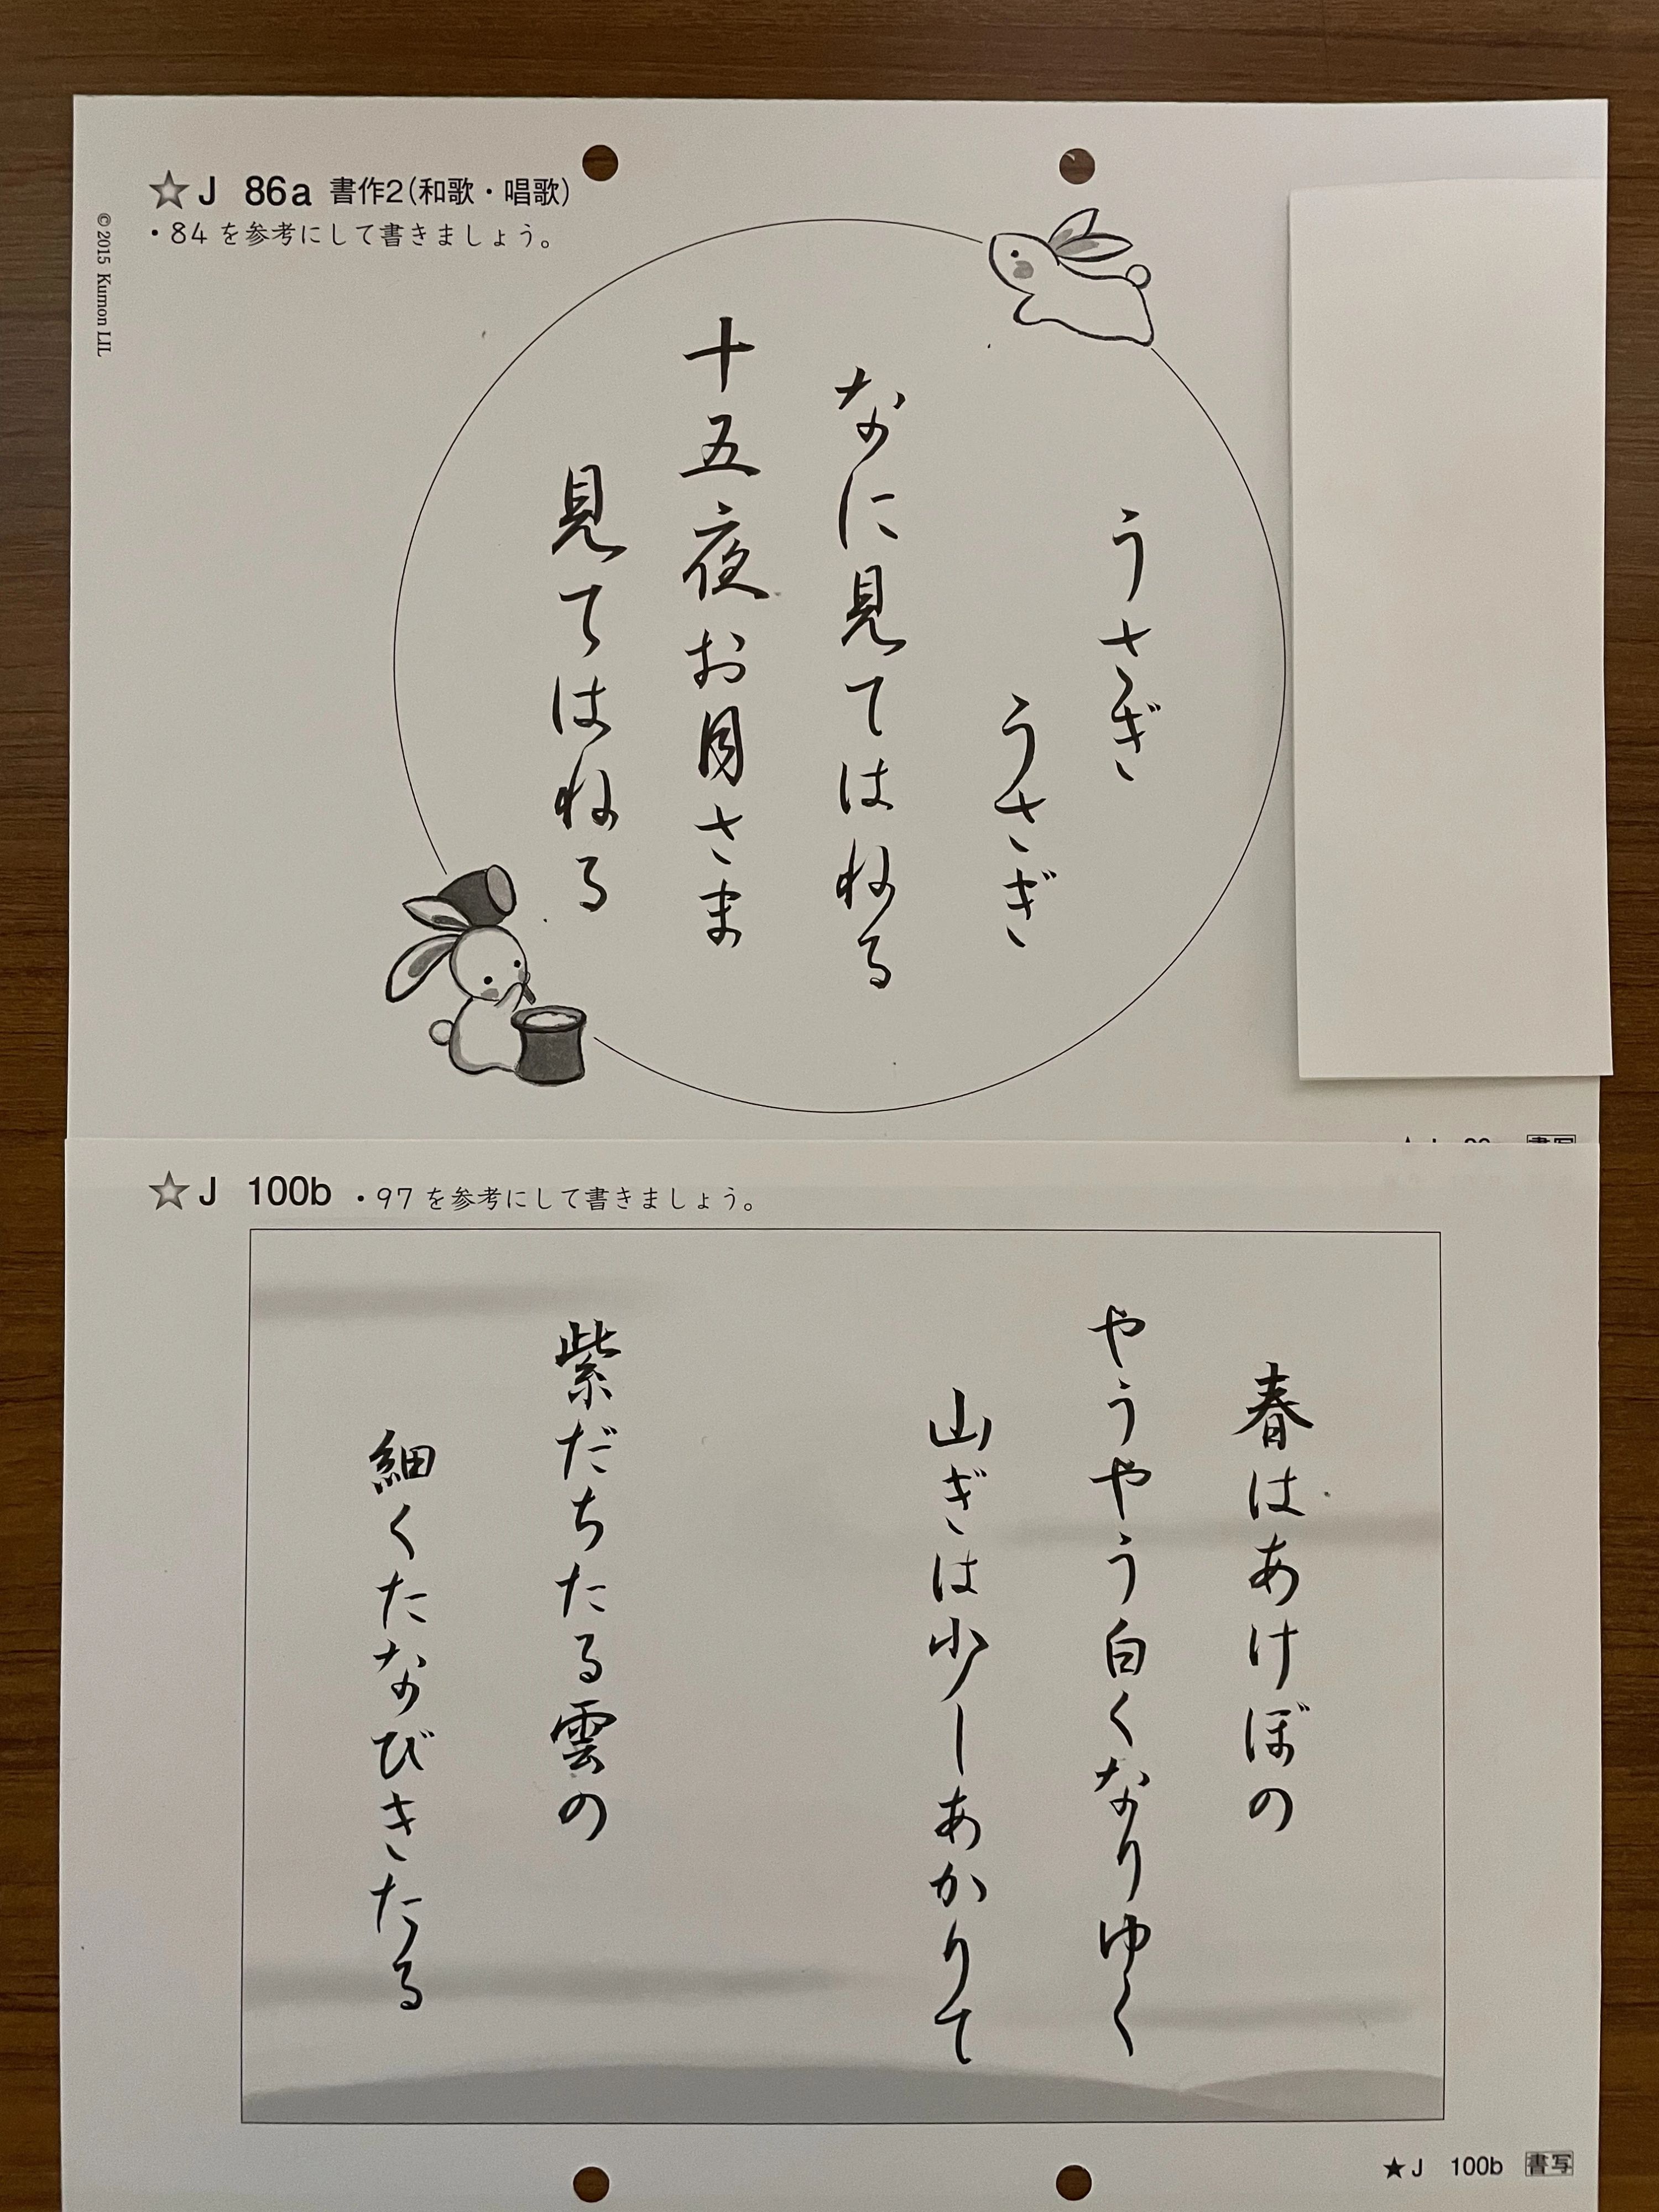 ☆J 86a 書作2(和歌・唱歌)
・84 を参考にして書きましょう。
© 2015 Kumon LIL
うさぎ
うさぎ
なに見てはねる
十五夜お月さま
見てはねる
☆J 100b ・97 を参考にして書きましょう。
春はあけぼの
やうやう白くなりゆく
山ぎは少しあかりて
紫だちたる雲の
細くたなびきたる
★J 100b 書写